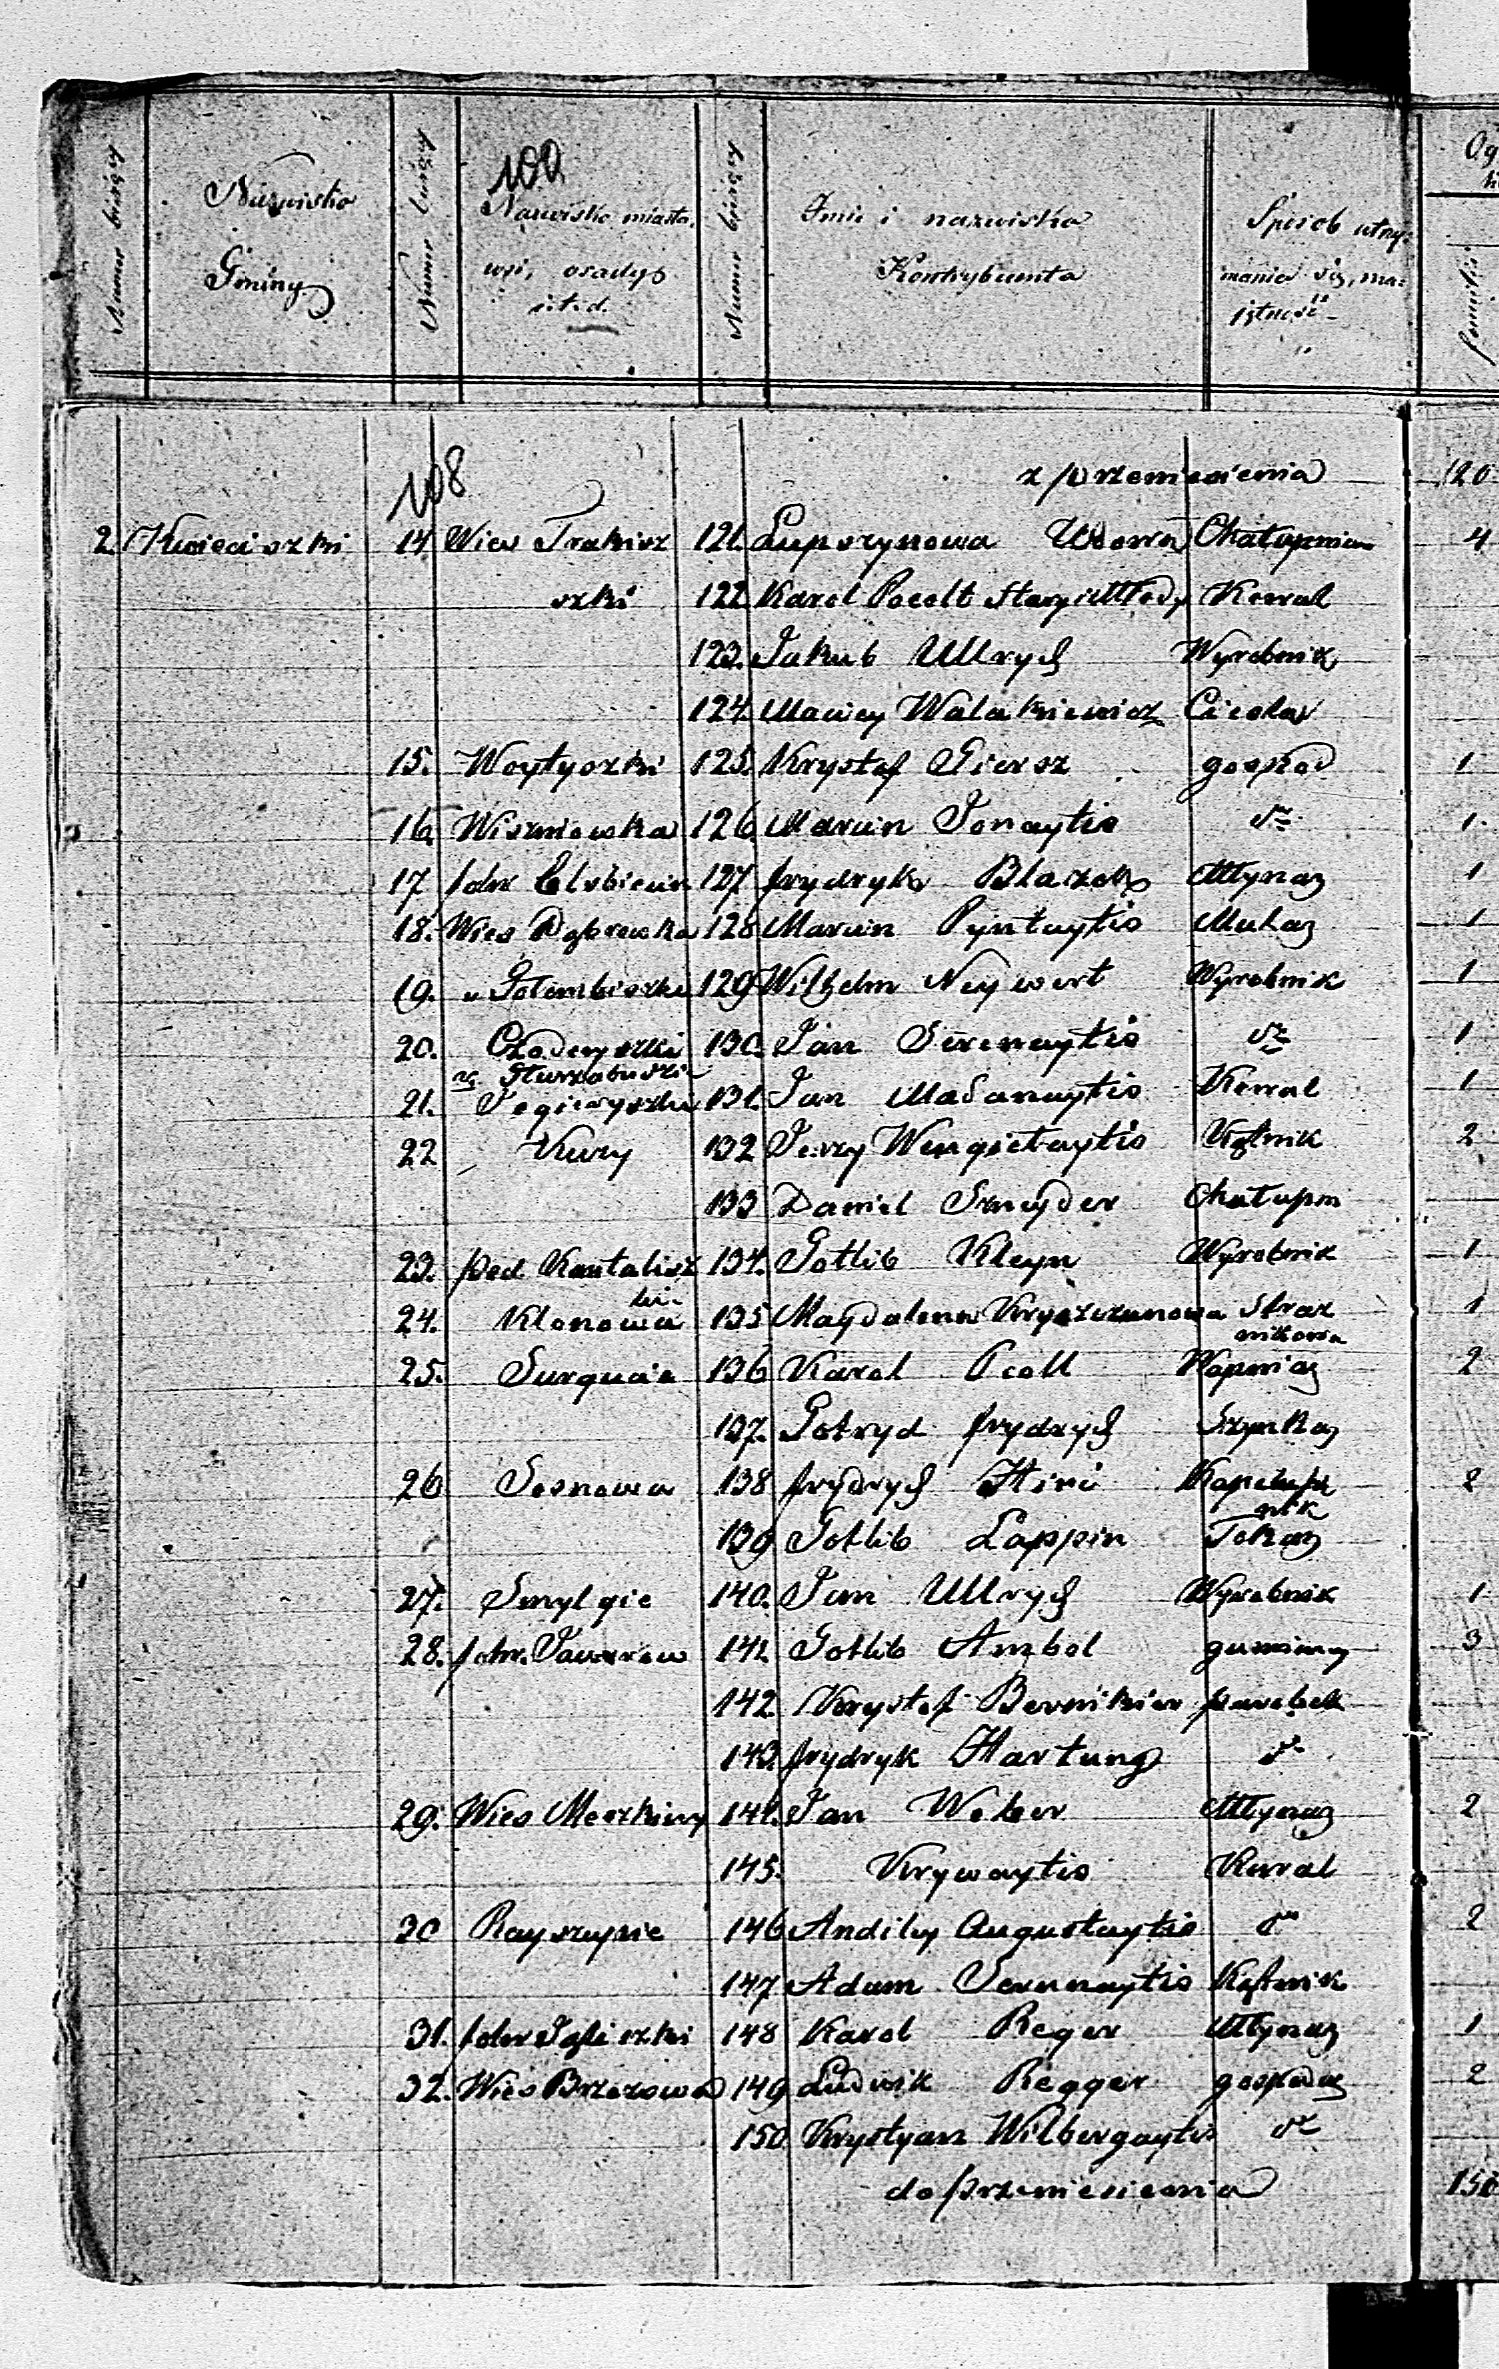 Numer bieżący
Nazwisko
Gminy
Numer bieżący
100
Nazwisko miasta,
wsi, osady
i.t.d.
Numer bieżący
Imie i nazwiska
Kontrybuenta
Sposób utrzy-
mania się, ma-
jętność
familii
108
z przeniesienia 120
2. Kwieciszki 14 Wies Trakisz 121. Lupszynowa Wdowa Chałupnica 4
szki 122 Karol Pocelt Stary i Młody Kowal
123. Jakub Ullrych Wyrobnik
124. Maciey Walakiewicz Ciesla
15. Woytyszki 125. Krystof Giersz gospod 1
16. Wiszniowka 126. Marcin Jonaytis dto 1
17 folw. 127 Frydryk Blazek Młynaz 1
18. Wies Dąbrowka 128 Marcin Pyntaytis Mulaz 1
19. " Golembiszki 129 Wilhelm Neywert Wyrobnik 1
20. 130. Jan Serenaytis dto 1
21. 131. Jan Madanaytis Kowal 1
22 Kury 132 Jerzy Wengietaytis Kątnik 2
133 Daniel Sznyder Chałupn
23. pod Kantalisz 134. Gotlib Kleyn Wyrobnik 1
ki
24. Klonowa 135 Magdalena Kryszczunowa Straz 1
nikowa
25. Surgucie 136 Karol Pcoll Wapniaz 2
137. Gotryd Frydrych Szynkaz
26 Sosnowa 138 Frydrych Hirć 2
nik
139 Gotlib Lappin Tokaz
27. Smylgie 140. Jan Ullrych Wyrobnik 1
28. folw. Tauurow 141. Gotlib Ambol gumienny 3
142 Krystof Bernikier parobek
143. Frydryk Hartung dto
29. Wies Meszkiny 144. Jan Weber Młynaz 2
145. Krywaytis Kowal
30 Rayszupie 146 Andrzey Augustaytis dto 2
147 Adam Serunaytis Kątnik
31. folw 148 Karol Reger Młynaz 1
32. Wies Brzozowa 149 Ludwik Regger gospodaz 2
150. Krystyan Wilbergaytis dto
do przeniesienia 150